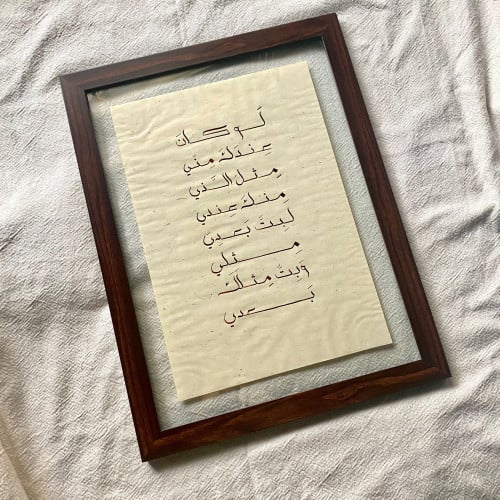 لَو كانَ
عِندَكَ مِني
مِثل الَذي
مِنكَ عِندي
لَبِتَّ بَعدِي
مِثلي
وَبِتُّ مِثلَكَ
بَعدي